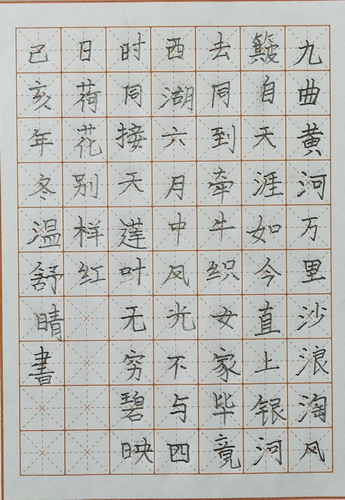 九曲黄河万里沙浪淘风
簸自天涯如今直上银河
去同到牵牛织女家毕竟
西湖六月中风光不与四
时同接天莲叶无穷碧映
日荷花别样红
己亥年冬温舒晴書